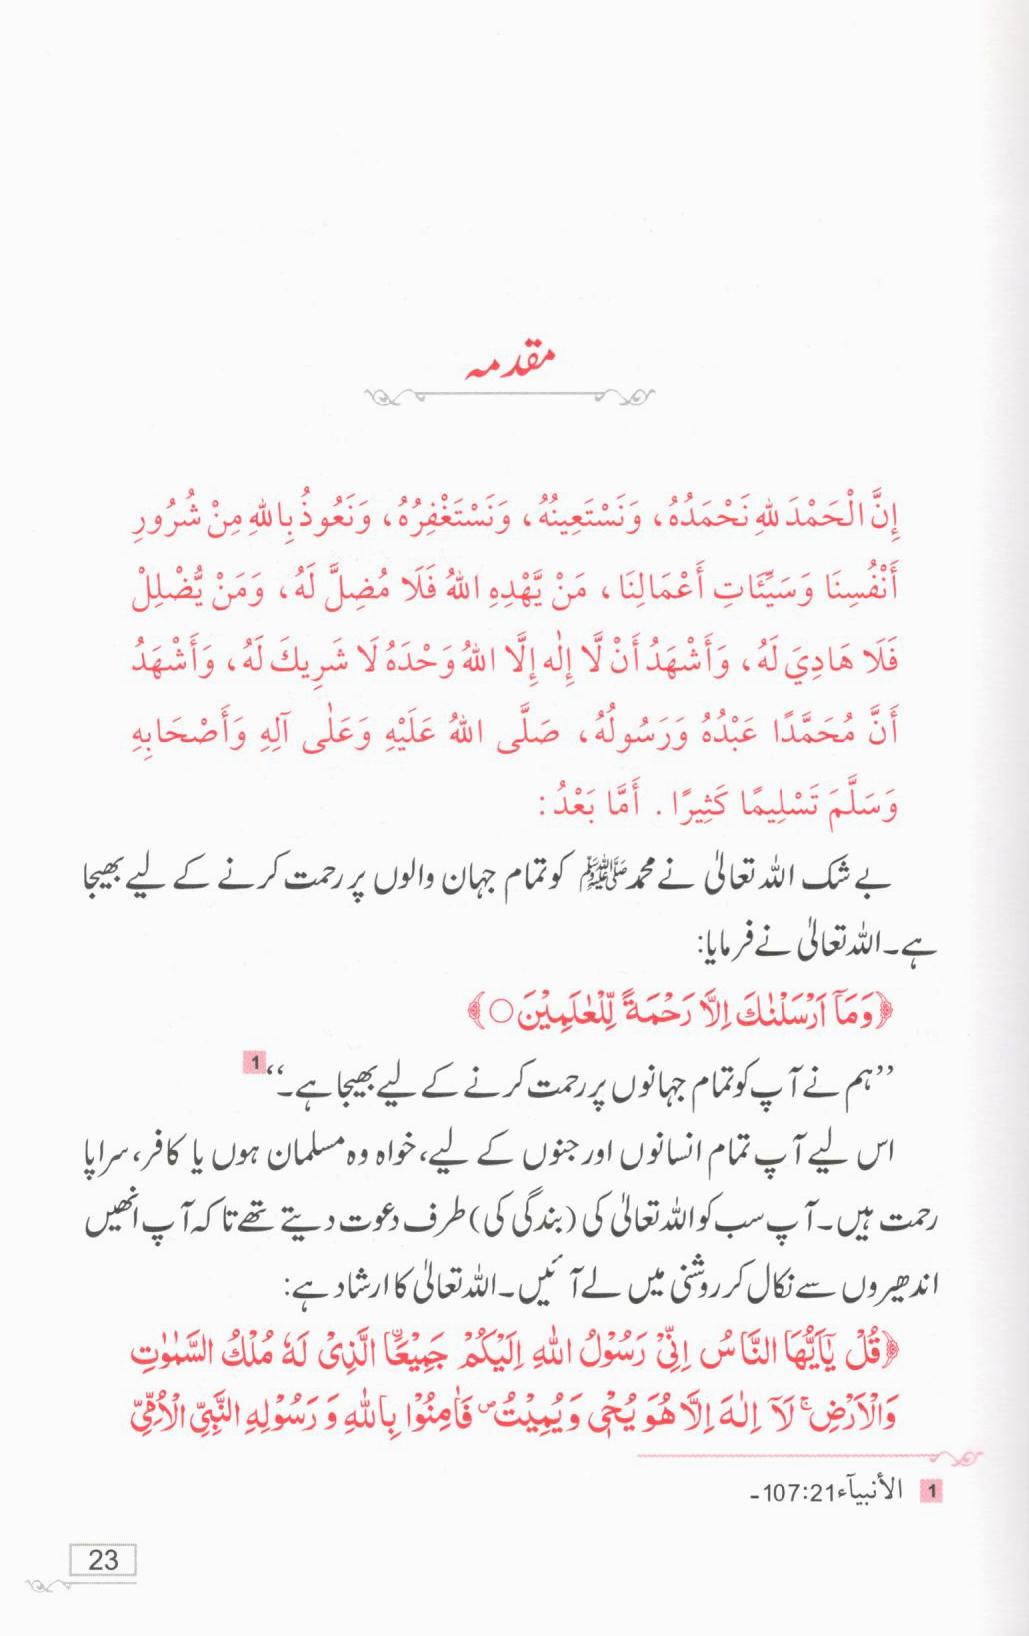 مقدمہ
إِنَّ الْحَمْدَ لِلّٰهِ نَحْمَدُهُ، وَنَسْتَعِينُهُ، وَنَسْتَغْفِرُهُ، وَنَعُوذُ بِاللّٰهِ مِنْ شُرُورِ
أَنْفُسِنَا وَسَيِّئَاتِ أَعْمَالِنَا، مَنْ يَّهْدِهِ اللّٰهُ فَلَا مُضِلَّ لَهُ، وَمَنْ يُّضْلِلْ
فَلَا هَادِيَ لَهُ، وَأَشْهَدُ أَنْ لَّا إِلٰه إِلَّا اللّٰهُ وَحْدَهُ لَا شَرِيكَ لَهُ، وَأَشْهَدُ
أَنَّ مُحَمَّدًا عَبْدُهُ وَرَسُولُهُ، صَلَّى اللّٰهُ عَلَيْهِ وَعَلٰى آلِهِ وَأَصْحَابِهِ
وَسَلَّمَ تَسْلِيمًا كَثِيرًا. أَمَّا بَعْدُ:
بے شک اللہ تعالیٰ نے محمد ﷺ کو تمام جہان والوں پر رحمت کرنے کے لیے بھیجا
ہے۔ اللہ تعالیٰ نے فرمایا:
﴿وَمَآ اَرْسَلْنٰكَ اِلَّا رَحْمَةً لِّلْعٰلَمِيْنَ ○﴾
’’ہم نے آپ کو تمام جہانوں پر رحمت کرنے کے لیے بھیجا ہے۔‘‘ 1
اس لیے آپ تمام انسانوں اور جنوں کے لیے، خواہ وہ مسلمان ہوں یا کافر، سراپا
رحمت ہیں۔ آپ سب کو اللہ تعالیٰ کی (بندگی کی) طرف دعوت دیتے تھے تا کہ آپ انھیں
اندھیروں سے نکال کر روشنی میں لے آئیں۔ اللہ تعالیٰ کا ارشاد ہے:
﴿قُلْ يٰٓاَيُّهَا النَّاسُ اِنِّيْ رَسُوْلُ اللّٰهِ اِلَيْكُمْ جَمِيْعَاۨ الَّذِيْ لَهٗ مُلْكُ السَّمٰوٰتِ
وَالْاَرْضِ ۚ لَآ اِلٰهَ اِلَّا هُوَ يُحْيٖ وَيُمِيْتُ ۖ فَاٰمِنُوْا بِاللّٰهِ وَ رَسُوْلِهِ النَّبِيِّ الْاُمِّيِّ
1 الأنبيآء 107:21۔
23